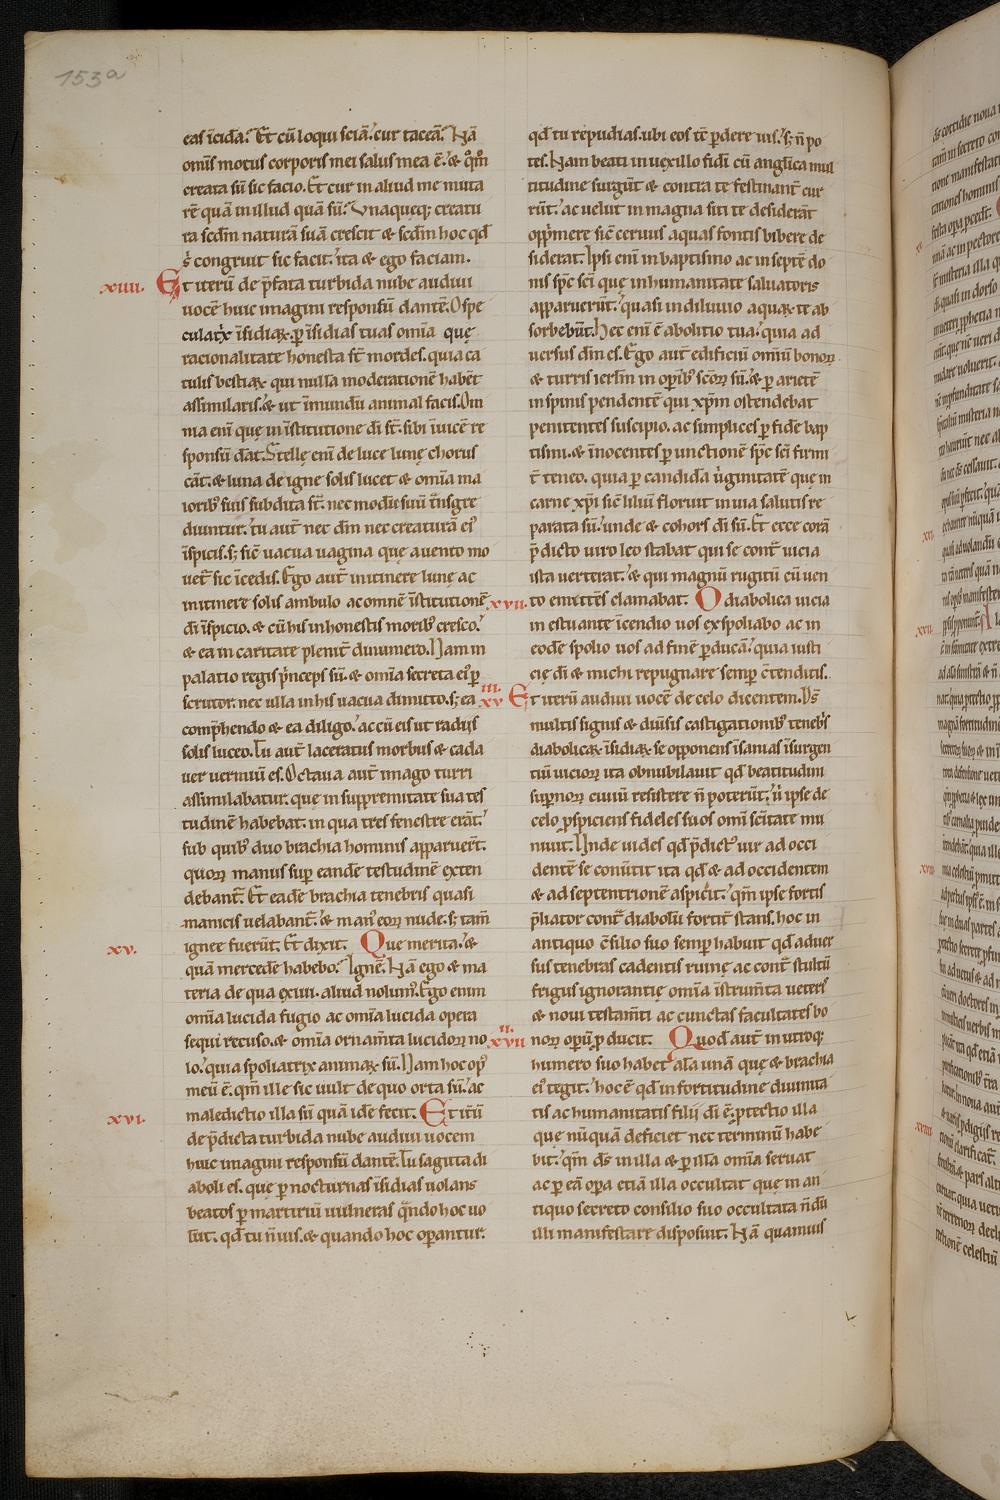 153a
eas īcidā? Et cū loqui sciā. cur taceā? Nā
om̄is motus corporis mei salus mea ē. & q̄m
creata sū sic facio. Et cur in aliud me muta
rē quā in illud quā sū? Vnaqueq; creatu
ra scd̄m naturā suā crescit & scd̄m hoc qd̄
s̄ congruit sic facit. ita & ego faciam.
xiiii. Et iterū de p̄fata turbida nube audiui
uocē huic imagini responsū dantē. O spe
culatx̄ īsidiaꝝ. ꝑ īsidias tuas om̄ia que
racionalitate honesta st̄ mordes. quia ca
tulis bestiaꝝ qui nullā moderationē habēt
assimilaris. & ut īmundū animal facis. Om
nia eni que in īstitutione dī st̄. sibi īuicē re
sponsū dāt. Stelle eni de luce lune chorus
cāt. & luna de igne solis lucet & om̄ia ma
iorib; suis subdita st̄. nec modū suū t̄nsgre
diuntur. tu aut̄ nec dm̄ nec creaturā ei᾽
īspicis. s; sic̄ uacua uagina que a uento mo
uet̄ sic īcedis. Ego aut̄ in itinere lune ac
in itinere solis ambulo ac omnē īstitutionē
dī īspicio. & cū his in honestis morib; cresco.
& ea in caritate plenit̄ dinumero. Nam in
palatio regis p̄nceps sū. & om̄ia secreta ei᾽ ꝑ
scrutor. nec ulla in his uacua dimitto. s; ea
comp̄hendo & ea diligo. ac cū eis ut radiis
solis luceo. Tu aut̄ laceratus morbus & cada
uer uermiū es. Octaua aut̄ imago turri
assimilabatur. que in suppremitate sua tes
tudinē habebat. in qua tres fenestre erāt.
sub quib; duo brachia hominis apparuer̄t.
quoꝝ manus sup eandē testudinē exten
debant̄. Et eadē brachia tenebris quasi
manicis uelabant̄. & man᾽ eoꝝ nude. s; tam̄
xv. ignee fuerūt. Et dixit. Que merita. &
quā mercedē habebo? Ignē. Nā ego & ma
teria de qua exiui. aliud nolum᾽. Ego enim
om̄ia lucida fugio ac om̄ia lucida opera
sequi recuso. & om̄ia ornam̄ta lucidoꝝ no
lo. quia spoliatrix animaꝝ sū. Nam hoc op᾽
meū ē. qm̄ ille sic uult de quo orta sū. ac
xvi. maledictio illa sū quā idē fecit. Et itū
de p̄dicta turbida nube audiui uocem
huic imagini responsū dantē. Tu sagitta di
aboli es. que ꝑ nocturnas īsidias uolans
beatos ꝑ martiriū uulneras q̄ndo hoc uo
lūt. qd̄ tu n̄ uis. & quando hoc oꝑantur.
qd̄ tu repudias. ubi eos tē ꝑdere uis. s; n̄ po
tes. Nam beati in uexillo fidī cū anglica mul
titudine surgūt & contra te festinant̄ cur
rūt. ac uelut in magna siti te desiderāt
opp̄mere sic̄ ceruus aquas fontis bibere de
siderat. Ipsi eni in baptismo ac in septē do
nis spc̄ sci que in humanitate saluatoris
apparuerūt. quasi in diluuio aquaꝝ te ab
sorbebūt. Hec eni ē abolitio tua. quia ad
uersus dm̄ es. Ego aut̄ edificiū omniū bonoꝝ
& turris ierlm̄ in oꝑib; scōꝝ sū. & ꝑ arietē
in spinis pendentē qui xp̄m ostendebat
penitentes suscipio. ac simplices ꝑ fidē bap
tismi. & īnocentes ꝑ unctionē spc̄ sci firmi
t̄ teneo. quia ꝑ candidā ūginitatē que in
carne xp̄i sic̄ liliū floruit in uia salutis re
parata sū. unde & cohors di sū. Et ecce corā
p̄dicto uiro leo stabat qui se cont̄ uicia
ista uerterat. & qui magnū rugitū cū uen
xvii. to emittēs clamabat. O diabolica uicia
in estuante īcendio uos exspoliabo ac in
eodē spolio uos ad finē ꝑducā. quia iusti
cie dī & michi repugnare semꝑ c̄tenditis.
iii. xv Et iterū audiui uocē de celo dicentem. Ds̄
multis signis & diūsis castigationib; tenebs̄
diabolicaꝝ īsidiaꝝ se opponens īsanias īsurgen
tiū uicioꝝ ita obnubilauit qd̄ beatitudini
sup̄noꝝ ciuiū resistere n̄ poterūt. ū ipse de
celo ꝑspiciens fideles suos omi scītate mu
niuit. Unde uides qd̄ p̄dict᾽ uir ad occi
dentē se conūtit ita qd̄ & ad occidentem
& ad septentrionē aspicit. qm̄ ipse fortis
p̄liator cont̄ diabolū fortit̄ stans. hoc in
antiquo c̄silio suo semꝑ habuit qd̄ aduer
sus tenebras cadentis ruine ac cont̄ stultū
frigus ignorantie om̄ia īstrum̄ta ueteris
& noui testam̄ti ac cunctas facultates bo
ii. xvii noꝝ opum ꝑducit. Quod aut̄ in utroq;
humero suo habet alā unā que & brachia
ei᾽ tegit. hoc ē qd̄ in fortitudine diuinita
tis ac humanitatis filii di ē. ꝓtectio illa
que nūquā deficiet nec terminū habe
bit. qm̄ ds̄ in illa & ꝑ illā om̄ia seruat
ac ꝑ eā oꝑa etiā illa occultat que in an
tiquo secreto consilio suo occultata n̄dū
illi manifestare disposuit. Nā quamuis